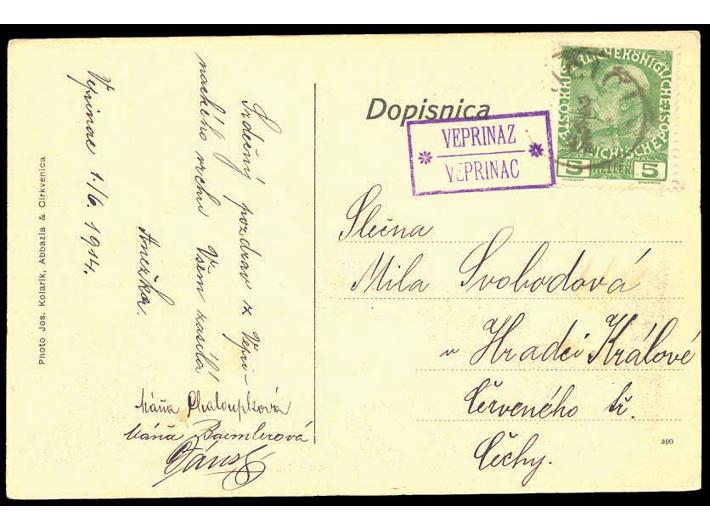 Dopisnica
VEPRINAZ
VEPRINAC
KAISERLICHE KÖNIGLICHE
5 HELLER 5
Slečna
Mila Svobodová
v Hradci Králové
Červeného tř.
Čechy.
590
Veprinac 1./6. 1914.
Srdečný pozdrav z Vepri-
nackého vrchu Všem zasílá
Anežka.
Máňa Chaloupková
Máňa Baemlerová
Photo Jos. Kolarik, Abbazia & Cirkvenica